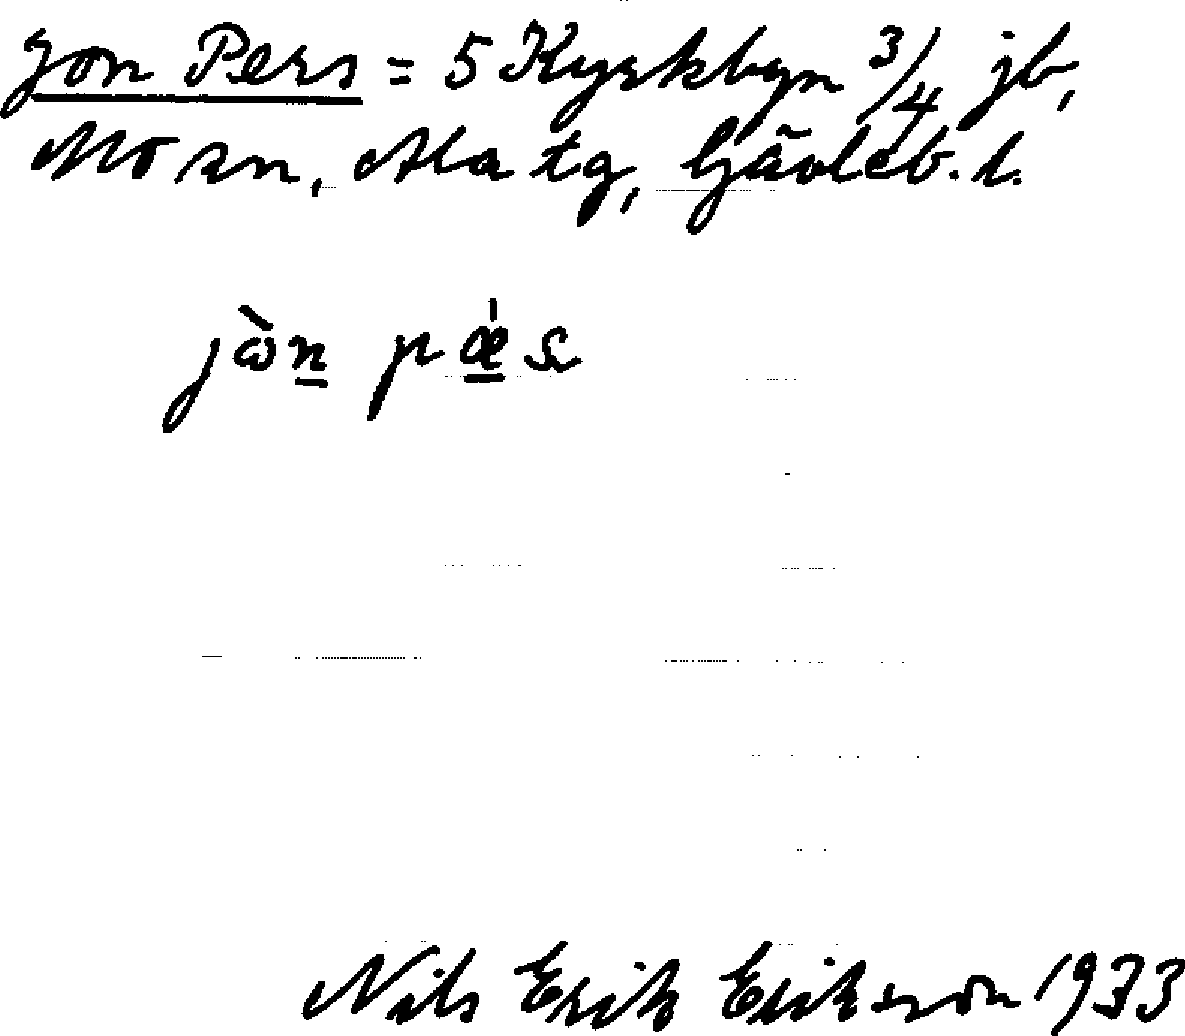 Jon Pers = 5 Kyrkbyn 3/4 jb,
Mo sn, Ala tg, Gävleb. l.
jὼn pǽs
Nils Erik Erikson 1933